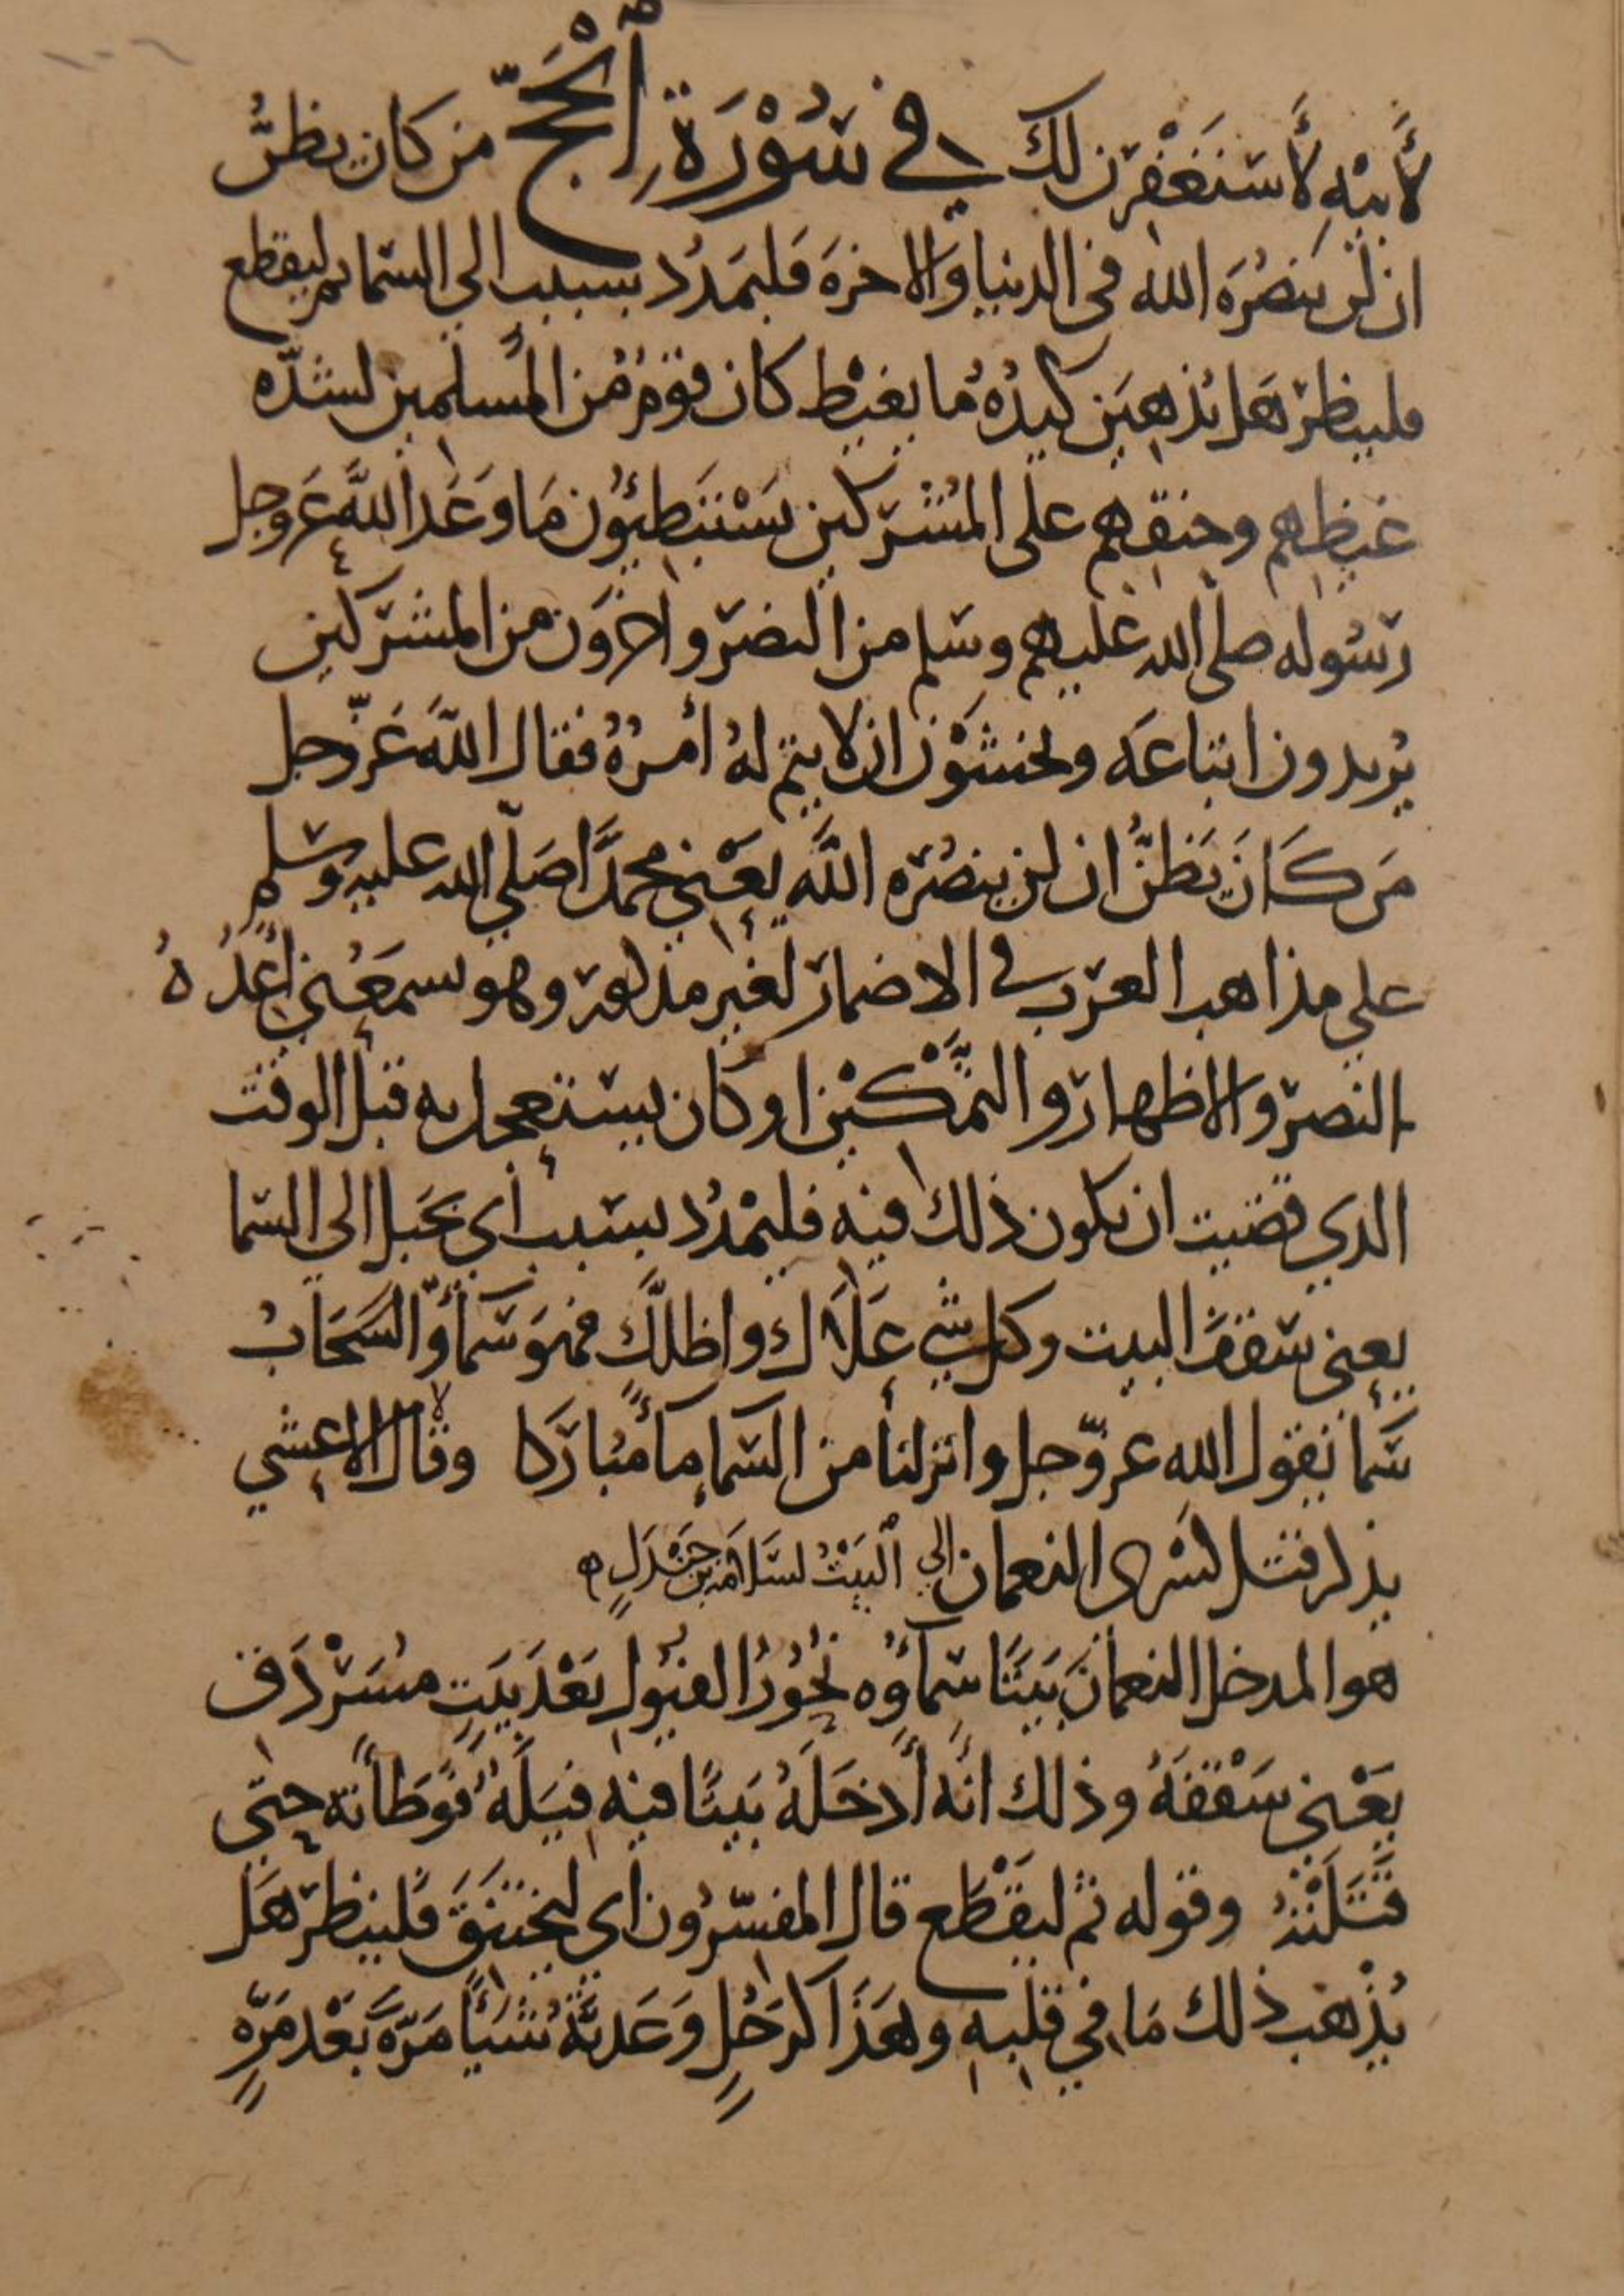 لأَبيْهِ لأَستَغْفِرَن لك في سُوْرَةِ ٱلْحَجّ مَن كان يظنُّ
ان لن يَنصُرَه الله في الدنيا وَالاخرَة فَليَمدُد بسبب الى السّما ثم ليقطع
فلينظرْ هَل يُذهِبَن كيدُهُ ما يغيْظ كان قومٌ مُن المُسلمين لشدّه
غيظهم وحنقهم على المشركين يَسْتَبَطِئوُن مَا وَعَدَ اللَّهُ عَز وجل
رَسُوله صلى الله عليهم وسَلم من النصر واخرَوُن من المشركين
يُريدون اتباعَه ويخشَوْن ان لا يتم لهُ أمرُهُ فقال اللهَ عَزّ وجل
مَن كَانَ يَظنُّ ان لن ينصُرَه اللَّه يَعْني محمدًا صَلّى الله عليه وسَلم
علي مذاهب العرَب في الاضمار لغير مذكور وهو يسمَعُني أعِدُهُ
النصر والاظهار والتَّمْكيْن او كان يستعجل به قبل الوقت
الذي قضيت ان يكون ذلك فيه فليمْدُد بسَبب أي بحَبل الي السّما
يعني سَقفَ البيت وكل شي عَلاَك واظلَّك فهوَ سَمآءٌ وّالسَّحَابُ
سَمآ يَقول الله عز وّجل وانزلنا من السَّمآءِ مآءً مُبارَكا وقال الاعشي
يذكر قتل كسْرى النعمان الي ٱلبَيْتُ لسَلاَمَة بن جَنْدَلٍ
هو المدخل النعمانَ بَيتًا سَمآؤُه نُحُوْرُ الفيُول بَعْدَ بَيتٍ مُسَرْدَق
يَعْني سَقفَهُ وذلك انَّه أَدخَلَهُ بَيتًا فيه فيَلَةٌ فَوَطأَته حتى
قَتَلَتْهُ وقوله ثم ليَقْطَع قال المفسّرُون اي ليختَنقَ فَلينظر هَل
يُذْهب ذلك مَا في قلبهِ وهَذَا كرَجُلٍ وَعَدتَّهُ شَيئًا مَرَّةً بَعْدَ مَرَّهٍ